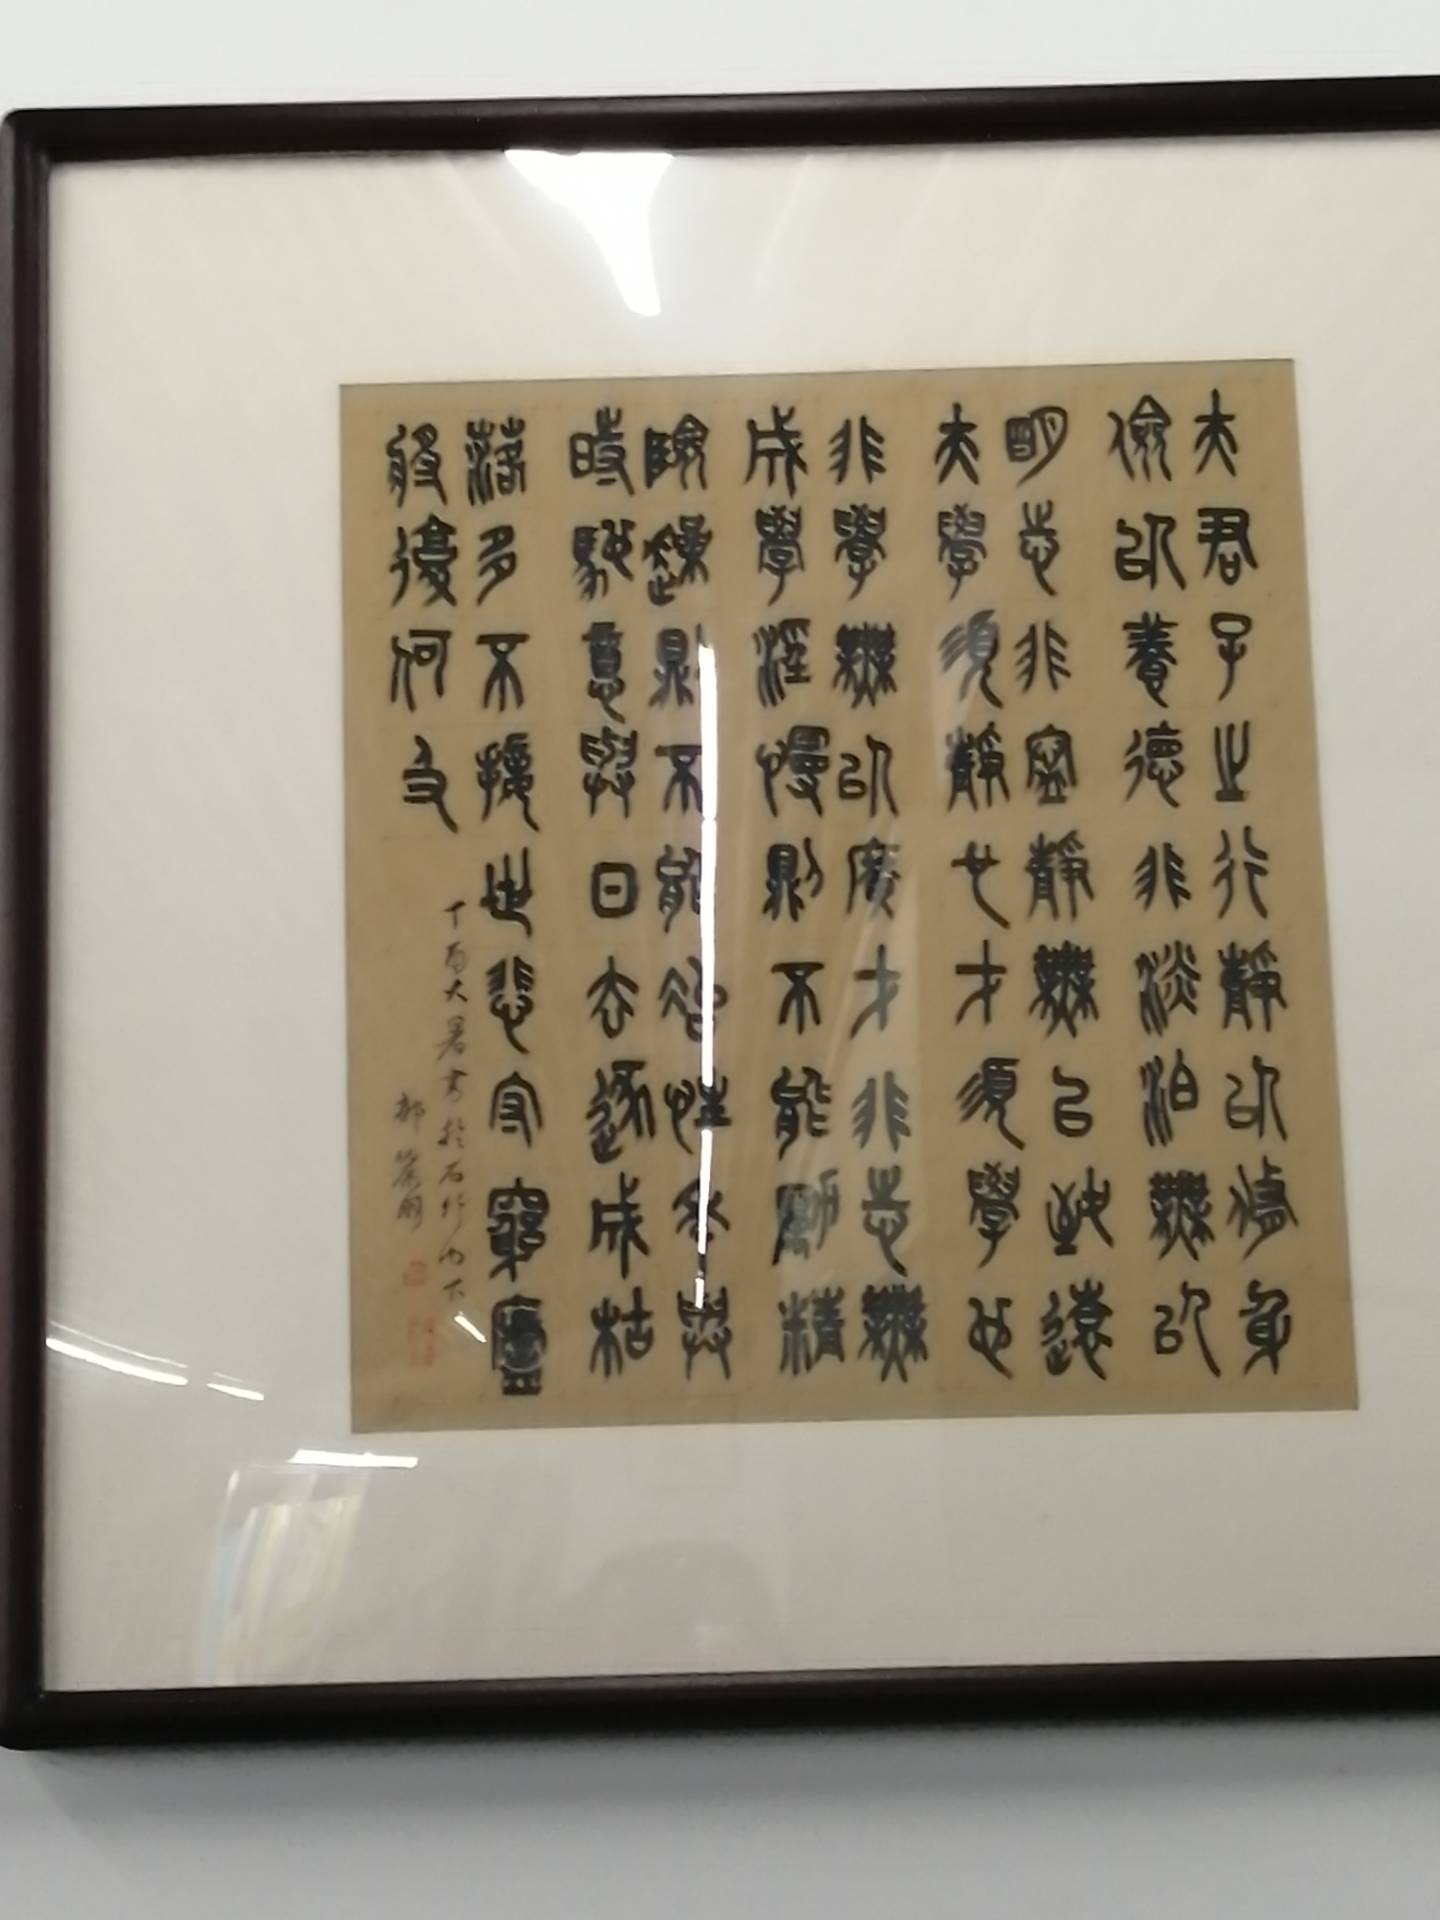 夫君子之行靜以脩身
儉以養德非淡泊無以
明志非寧靜無以致遠
夫學須靜也才須學也
非學無以廣才非志無
成學淫慢則不能勵精
險躁則不能治性年與
時馳意與日去遂成枯
落多不接世悲守窮廬
將復何及
丁酉大暑書於石竹山下